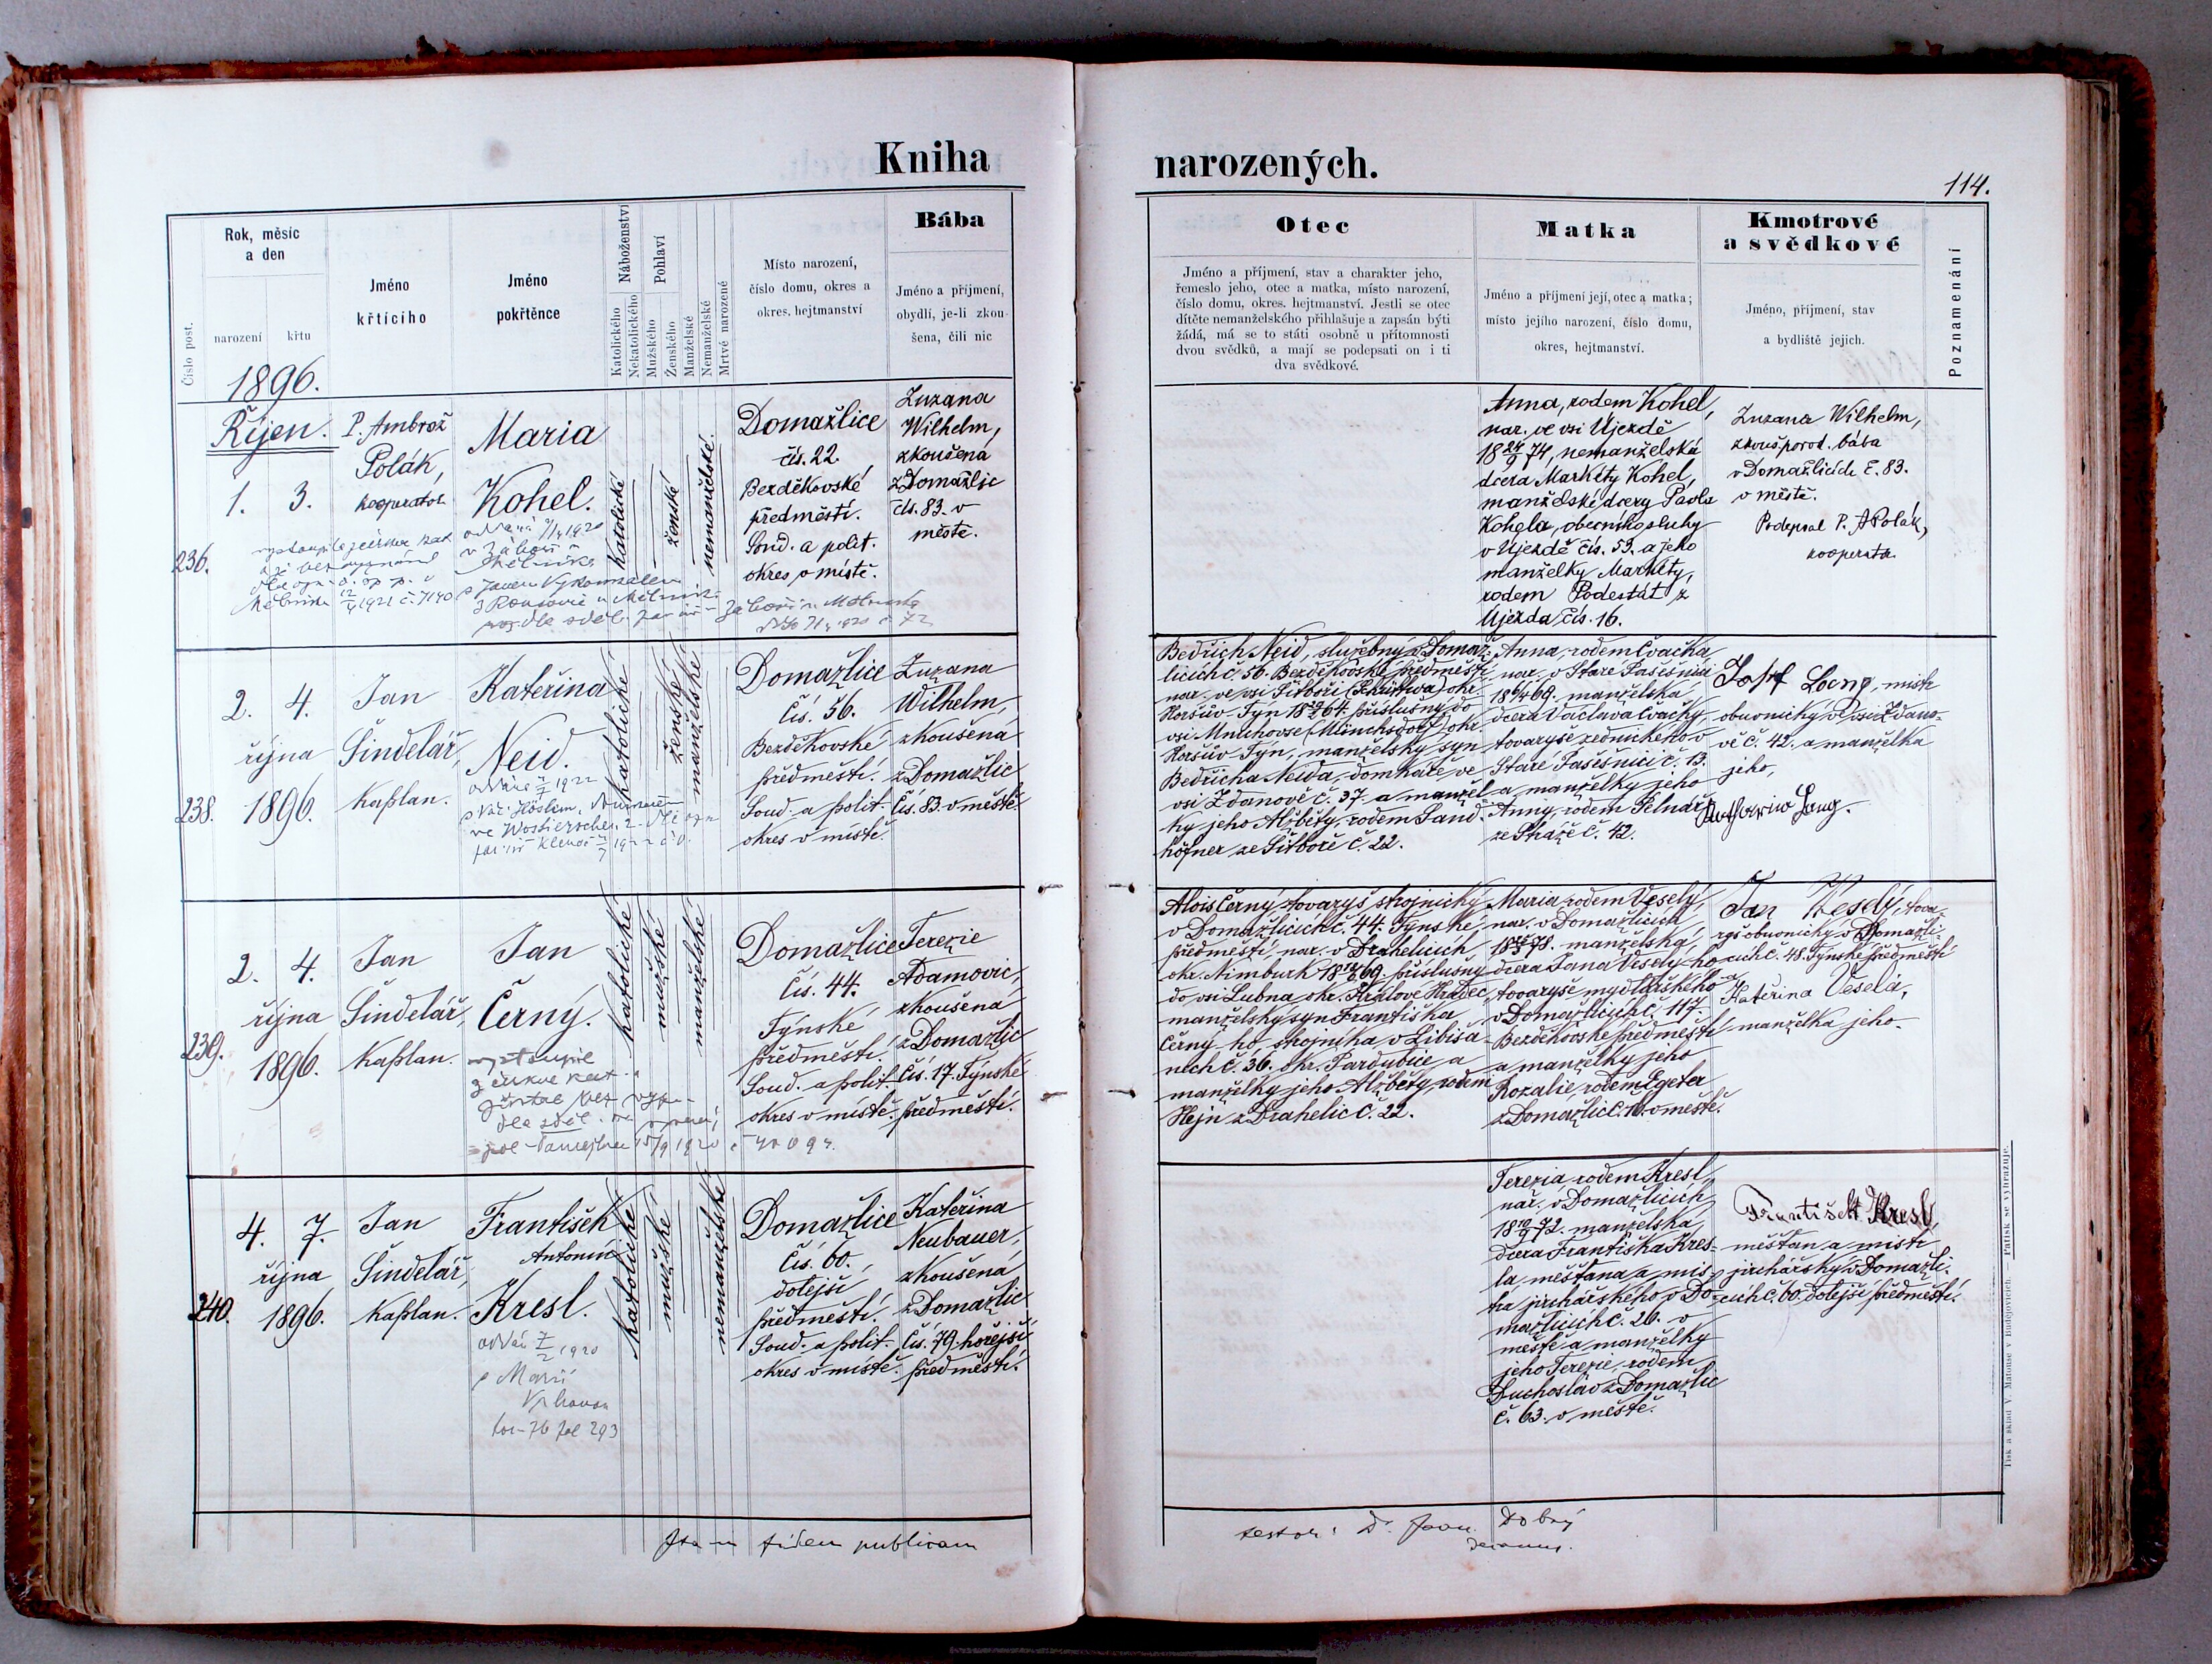 Kniha
Rok, měsíc
a den
narození
křtu
Číslo post.
Jméno
křtícího
Jméno
pokřtěnce
Náboženství
Katolického
Nekatolického
Pohlaví
Mužského
Ženského
Manželské
Nemanželské
Mrtvé narozené
Místo narození,
číslo domu, okres a
okres. hejtmanství
Bába
Jméno a příjmení,
obydlí, je-li zkou-
šena, čili nic
1896.
Říjen.
1. 3.
236.
P. Ambrož
Polák,
kooperator
Maria
Kohel.
katolické
ženské
nemanželské.
Domažlice
čís. 22.
Bezděkovské
předměstí.
Soud. a polit.
okres v místě.
Zuzana
Wilhelm,
zkoušena
z Domažlic
čís. 83. v
městě.
2. 4.
října
238. 1896.
Jan
Šindelář,
kaplan.
Kateřina
Neid.
katolické
ženské
manželské
Domažlice
Čís. 56.
Bezděkovské
předměstí.
Soud. a polit.
okres v místě.
Zuzana
Wilhelm,
zkoušená
z Domažlic
Čís. 83. v městě.
2. 4.
října
239. 1896.
Jan
Šindelář,
kaplan.
Jan
Černý.
katolické
mužské
manželské
Domažlice
Čís. 44.
Týnské
předměstí.
Soud. a polit.
okres v místě.
Terezie
Adamovic,
zkoušená
z Domažlic
Čís. 17. Týnské
předměstí.
4. 7.
října
240. 1896.
Jan
Šindelář,
kaplan.
František
Antonín
Kresl.
katolické
mužské
nemanželské
Domažlice
Čís. 60.
dolejší
předměstí.
Soud. a polit.
okres v místě.
Kateřina
Neubauer,
zkoušená
z Domažlic
Čís. 79. hořejší
předměstí.
fidem publicam
narozených.
114.
Otec
Jméno a příjmení, stav a charakter jeho,
řemeslo jeho, otec a matka, místo narození,
číslo domu, okres. hejtmanství. Jestli se otec
dítěte nemanželského přihlašuje a zapsán býti
žádá, má se to státi osobně u přítomnosti
dvou svědků, a mají se podepsati on i ti
dva svědkové.
Matka
Jméno a příjmení její, otec a matka;
místo jejího narození, číslo domu,
okres, hejtmanství.
Kmotrové
a svědkové
Jméno, příjmení, stav
a bydliště jejich.
Poznamenání
Anna, rodem Kohel,
nar. ve vsi Újezdě
18 24/9 74, nemanželská
dcera Markéty Kohel,
manželské dcery Pavla
Kohela, obecního sluhy
v Újezdě čís. 59. a jeho
manželky Markéty,
rodem Podestát z
Újezda čís. 16.
Zuzana Wilhelm,
zkouš. porod. bába
v Domažlicích č. 83.
v městě.
Podepsal P. A Polák,
kooperator
Bedřich Neid, služebný v Domaž-
licích č. 56. Bezděkovské předměstí
nar. ve vsi Šitboři okr.
Horšův-Týn příslušný do
vsi Mnuhovse (Münchsdorf) okr.
Horšův-Týn, manželský syn
Bedřicha Neida, domkáře ve
vsi Ždanově č. 37. a manžel-
ky jeho Alžběty, rodem Sand-
höfner ze Šitboře č. 22.
Anna, rodem Cvačka
manželská
dcera Václava Cvačky,
tovaryše zednického v
Staré Pasečnici č. 13.
a manželky jeho
Anny, rodem Pelnář
ze Stráže č. 42.
Josef Lang, mistr
obuvnický ve vsi Ždano-
vě č. 42. a manželka
jeho,
Katharina Lang.
Alois Černý, tovaryš strojnický
v Domažlicích č. 44. Týnské
předměstí, nar. v Drahelicích
okr. Nimburk příslušný
do vsi Lubna okr. Králové Hradec,
manželský syn Františka
Černý-ho, strojníka v Libiša-
nech č. 36. okr. Pardubice a
manželky jeho Alžběty, rodem
Hejn z Drahelic č. 22.
Maria, rodem Veselý,
nar. v Domažlicích
manželská
dcera Jana Veselý-ho
tovaryše mydlářského
v Domažlicích č. 117.
Bezděkovské předměstí
a manželky jeho
Rozalie, rodem Egeter
z Domažlic č. 10. v městě.
Jan Veselý, tova-
ryš obuvnický v Domažli-
cích č. 48. Týnské předměstí
Kateřina Veselá,
manželka jeho.
Terezia, rodem Kresl,
nar. v Domažlicích
manželská
dcera Františka Kres-
la, měšťana a mis-
tra jirchářského v Do-
mažlicích č. 26. v
městě a manželky
jeho Terezie, rodem
Duchoslav z Domažlic
č. 63. v městě.
František Kresl,
měšťan a mistr
jirchářský v Domažli-
cích č. 60. dolejší předměstí.
testor: Dr. Dobrý
Tisk a sklad V. Matouše v Budějovicích. Patisk se vyhražuje.